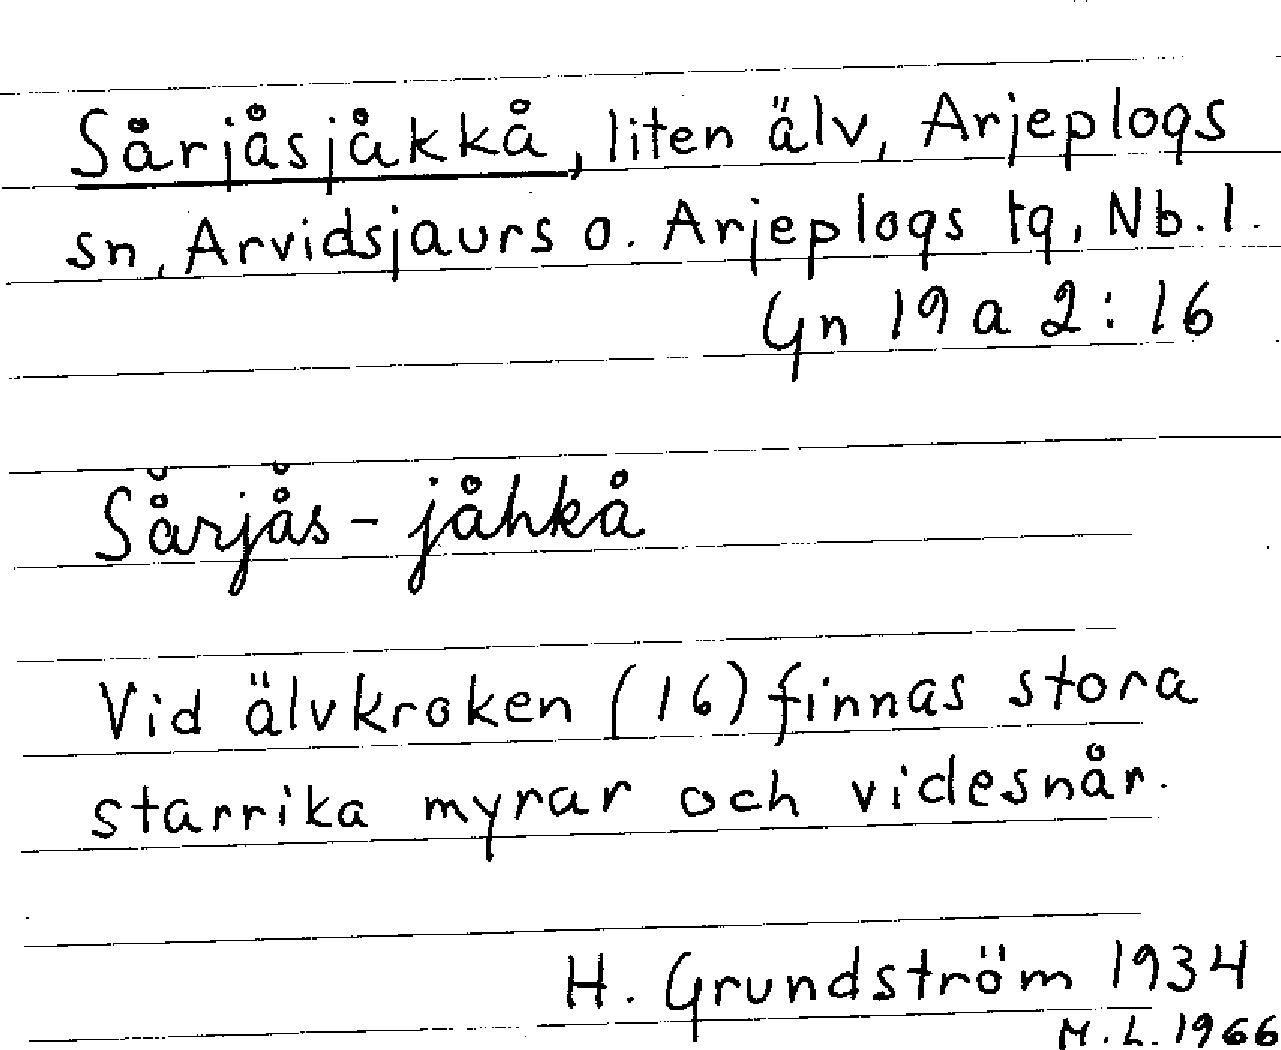 Sårjåsjåkkå, liten älv, Arjeplogs
sn, Arvidsjaurs o. Arjeplogs tg, Nb. l.
Gn 19 a 2:16
Så̆rjå̆s - jåhkå
Vid älvkroken (16) finnas stora
starrika myrar och videsnår.
H. Grundström 1934
M. L. 1966